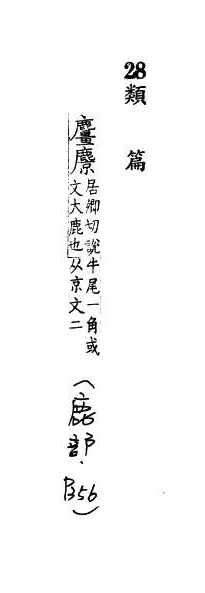 28
類篇
麠麖居卿切說
文大鹿也牛尾一角或
从京文二
(鹿部.
B56)